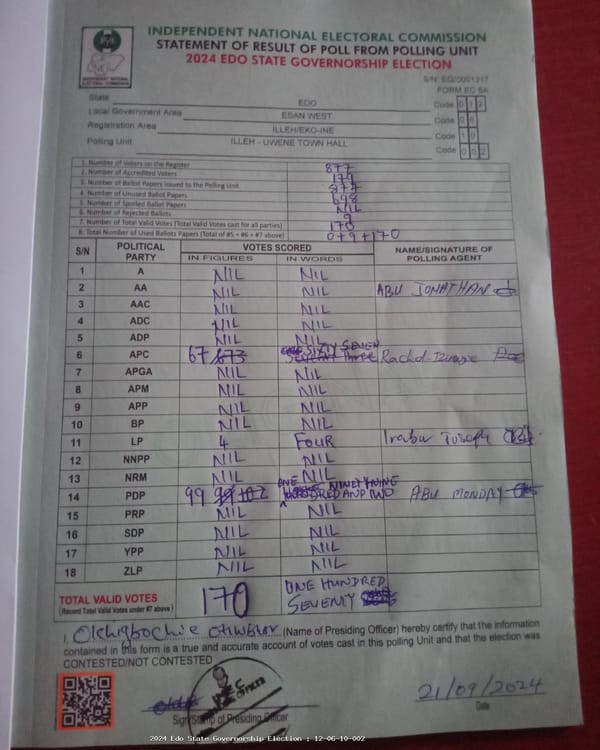 INDEPENDENT NATIONAL ELECTORAL COMMISSION
STATEMENT OF RESULT OF POLL FROM POLLING UNIT
2024 EDO STATE GOVERNORSHIP ELECTION
FORM EC 8A
State EDO Code 012
Local Government Area ESAN WEST Code 06
Registration Area ILLEH/EKO-INE Code 10
Polling Unit ILLEH - UWENE TOWN HALL Code 002
1. Number of Voters on the Register 877
2. Number of Accredited Voters 179
3. Number of Ballot Papers Issued to the Polling Unit 877
4. Number of Unused Ballot Papers 698
5. Number of Spoiled Ballot Papers NIL
6. Number of Rejected Ballots 9
7. Number of Total Valid Votes (Total Valid Votes cast for all parties) 170
8. Total Number of Used Ballots Papers (Total of #5 + #6 + #7 above) 0+9+170
S/N POLITICAL PARTY VOTES SCORED NAME/SIGNATURE OF POLLING AGENT
IN FIGURES IN WORDS
1 A NIL NIL
2 AA NIL NIL ABU JONATHAN
3 AAC NIL NIL
4 ADC NIL NIL
5 ADP NIL NIL
6 APC 67 SIXTY SEVEN
7 APGA NIL NIL
8 APM NIL NIL
9 APP NIL NIL
10 BP NIL NIL
11 LP 4 FOUR Joseph
12 NNPP NIL NIL
13 NRM NIL NIL
14 PDP 99 NINETY NINE ABU MONDAY
15 PRP NIL NIL
16 SDP NIL NIL
17 YPP NIL NIL
18 ZLP NIL NIL
TOTAL VALID VOTES 170 ONE HUNDRED SEVENTY
(Record Total Valid Votes under #7 above)
I, (Name of Presiding Officer) hereby certify that the information
contained in this form is a true and accurate account of votes cast in this polling Unit and that the election was
CONTESTED/NOT CONTESTED
21/09/2024
Sign/Stamp of Presiding Officer Date
2024 Edo State Governorship Election : 12-06-10-002